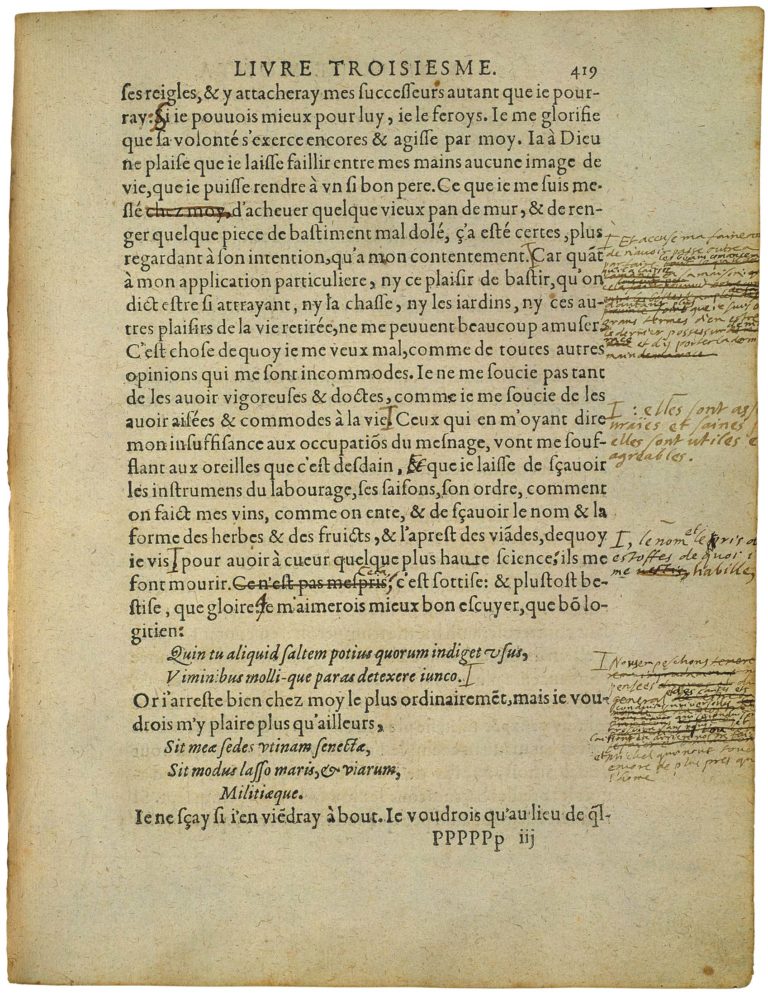 LIVRE TROISIESME. 419
ſes reigles, & y attacheray mes ſucceſſeurs autant que ie pour-
ray: Si ie pouuois mieux pour luy, ie le feroys. Ie me glorifie
que ſa volonté s'exerce encores & agiſſe par moy. Ia à Dieu
ne plaiſe que ie laiſſe faillir entre mes mains aucune image de
vie, que ie puiſſe rendre à vn ſi bon pere. Ce que ie me ſuis me-
ſlé chez moy, d'acheuer quelque vieux pan de mur, & de ren-
ger quelque piece de baſtiment mal dolé, ç'a eſté certes, plus
regardant à ſon intention, qu'a mon contentement. Car quãt
à mon application particuliere, ny ce plaiſir de baſtir, qu'on
dict eſtre ſi attrayant, ny la chaſſe, ny les iardins, ny ces au-
tres plaiſirs de la vie retirée, ne me peuuent beaucoup amuſer.
C'eſt choſe dequoy ie me veux mal, comme de toutes autres
opinions qui me ſont incommodes. Ie ne me ſoucie pas tant
de les auoir vigoreuſes & doctes, comme ie me ſoucie de les
auoir aiſées & commodes à la vie. Ceux qui en m'oyant dire
mon inſuffiſance aux occupatiõs du meſnage, vont me ſouf-
flant aux oreilles que c'eſt deſdain, & que ie laiſſe de ſçauoir
les inſtrumens du labourage, ſes ſaiſons, ſon ordre, comment
on faict mes vins, comme on ente, & de ſçauoir le nom & la
forme des herbes & des fruicts, & l'apreſt des viãdes, dequoy
ie vis, pour auoir à cueur quelque plus haute ſcience, ils me
font mourir. Ce n'eſt pas meſpris, Cela c'eſt ſottiſe: & pluſtoſt be-
ſtiſe, que gloire. Ie m'aimerois mieux bon eſcuyer, que bõ lo-
gitien:
Quin tu aliquid ſaltem potius quorum indiget vſus,
Viminibus molli-que paras detexere iunco.
Or i'arreſte bien chez moy le plus ordinairemẽt, mais ie vou-
drois m'y plaire plus qu'ailleurs,
Sit meæ ſedes vtinam ſenectæ,
Sit modus laſſo maris, & viarum,
Militiæque.
Ie ne ſçay ſi i'en viẽdray à bout. Ie voudrois qu'au lieu de q̃l-
PPPPPp iij
Et accuse ma faine
de n'avoir passe outre a
: elles sont as
uraies et saines
elles sont utiles e
agreables.
, le nom et le pris d
estoffes de quoi i
me habille,
Nous empeschons
pensées
general
et michel qui nous touc
encore de plus pres qu
l'home